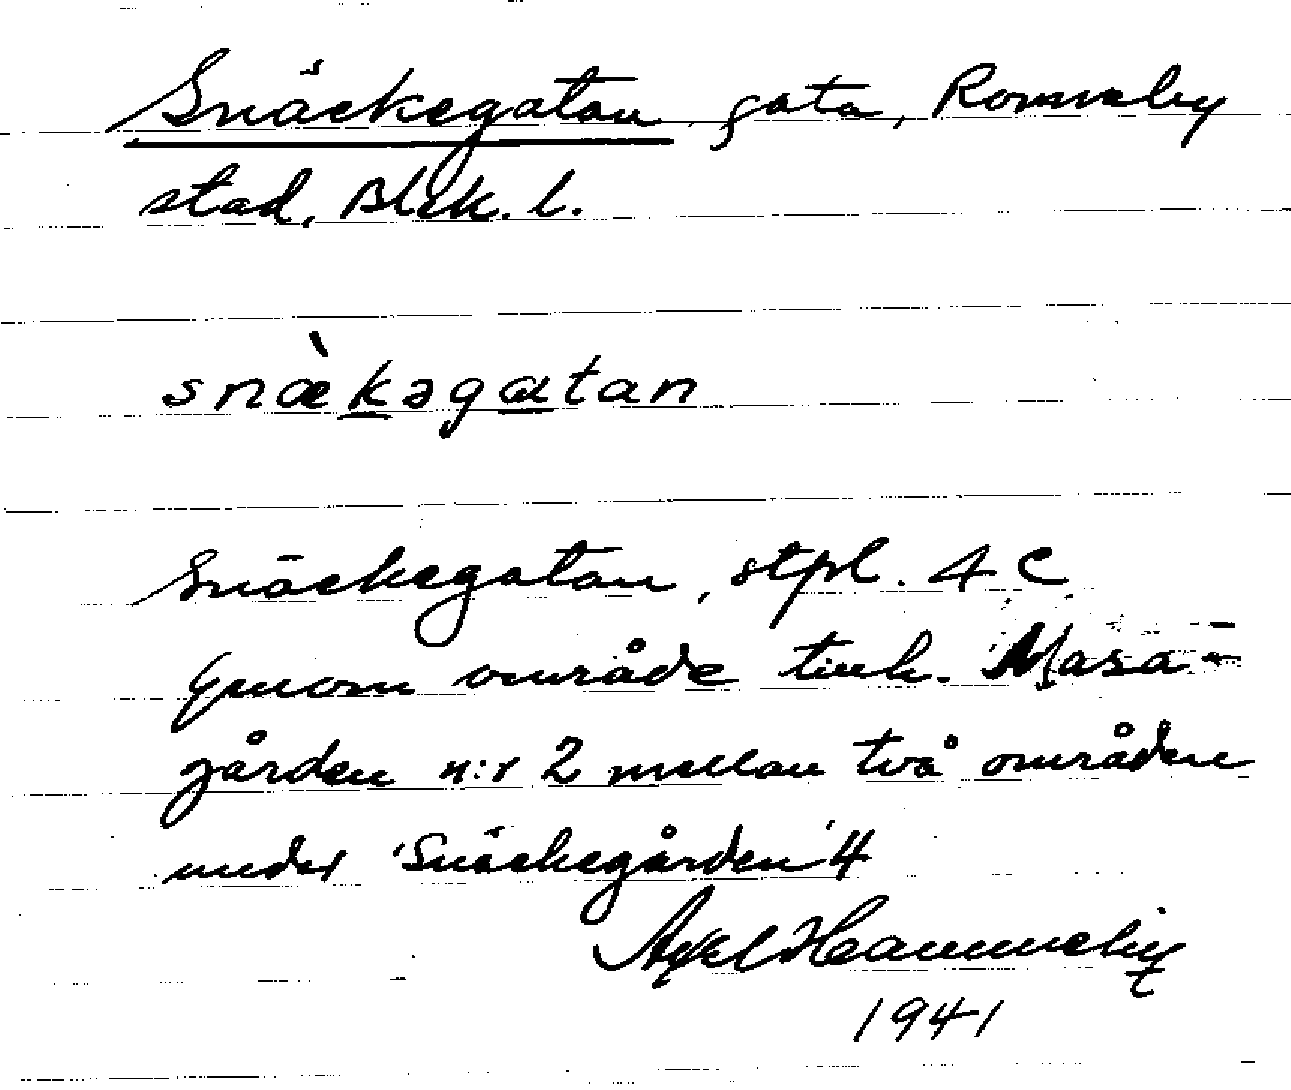 Snäckegatan, gata, Ronneby
stad, Blek. l.
snæ̀kəgatan
Snäckegatan, stpl. 4 C
Genom område tink. Masa-
gården n:r 2 mellan två områden
under 'Snäckegården' 4
Axel Hammeby
1941